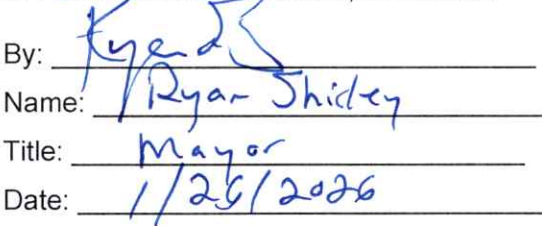 By:
Name: Ryan Shirley
Title: Mayor
Date: 1/26/2026